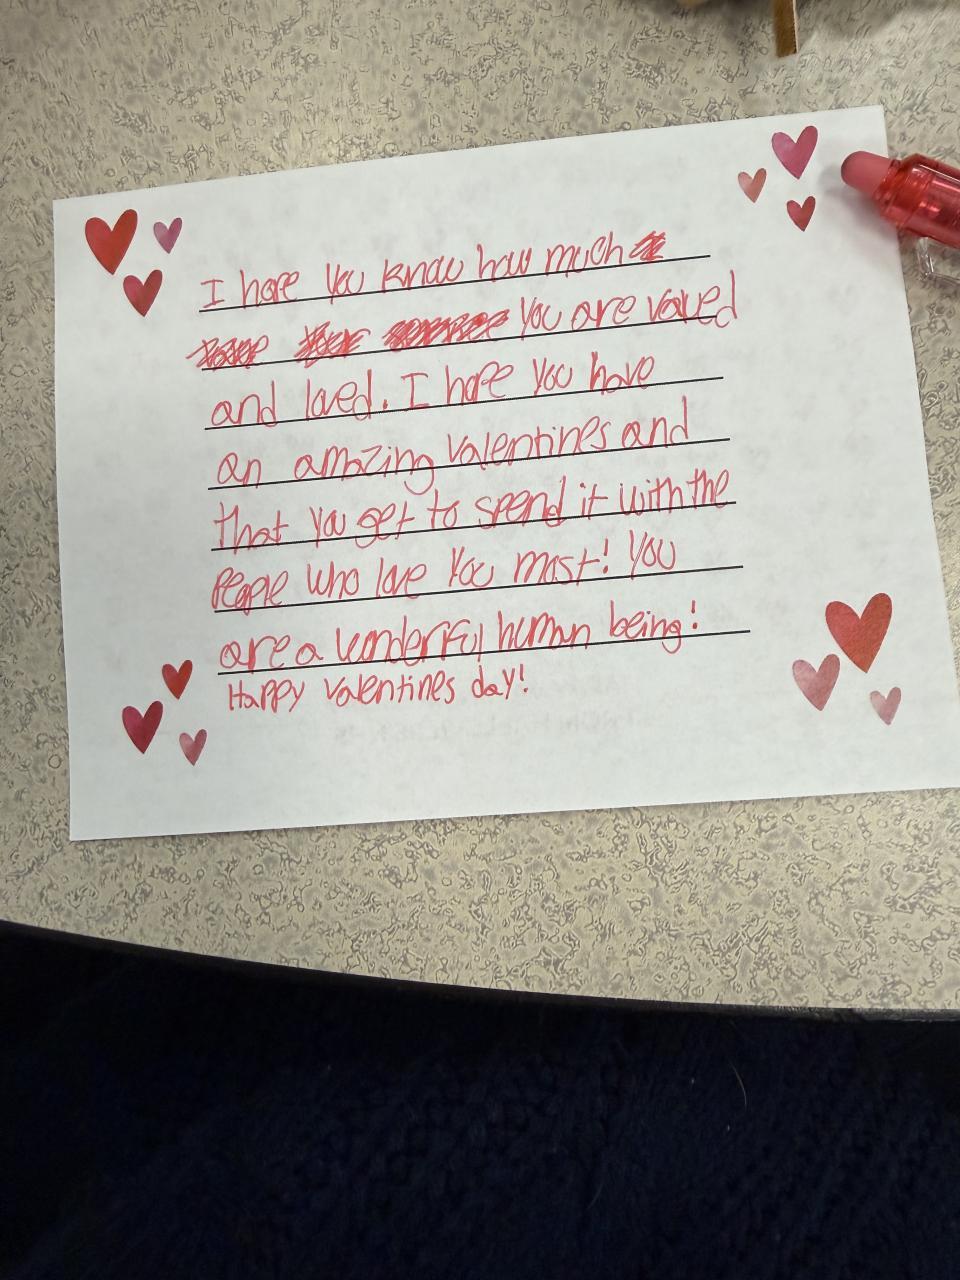 I hope you know how much
you are valued
and loved. I hope you have
an amazing valentines and
that you get to spend it with the
people who love you most! You
are a wonderful human being!
Happy valentines day!